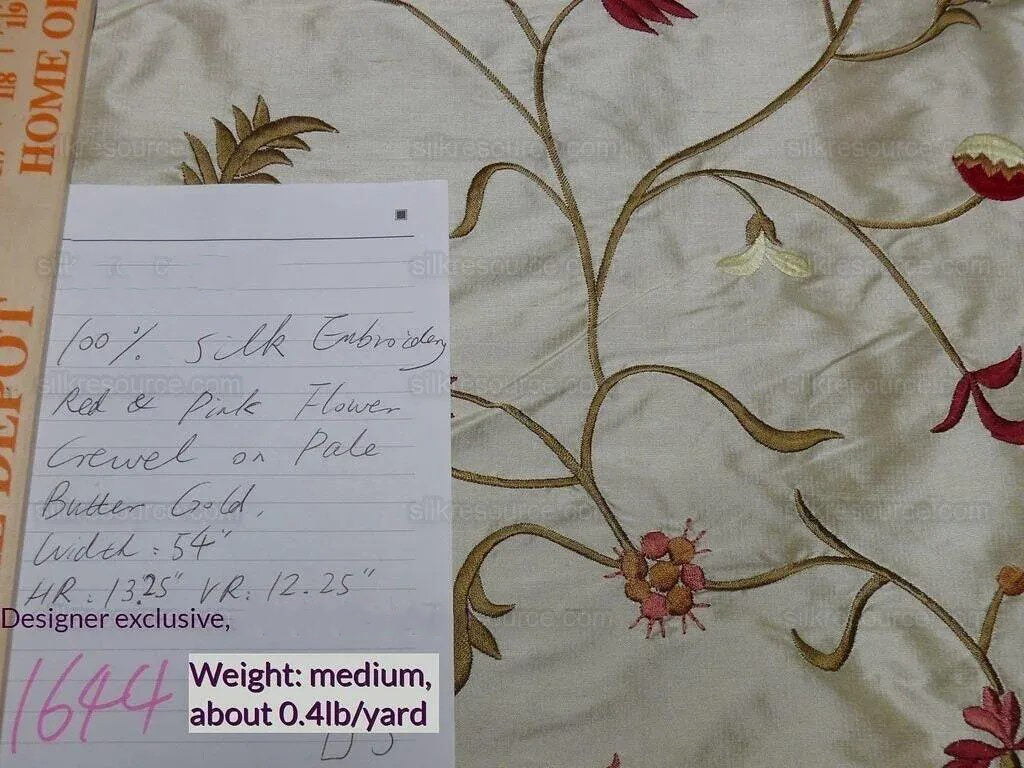 HOME DEPOT
silkresource.com
100% Silk Embroidery
Red & Pink Flower
Crewel on Pale
Butter Gold.
Width: 54"
HR: 13.25" VR: 12.25"
Designer exclusive,
1644
Weight: medium,
about 0.4lb/yard